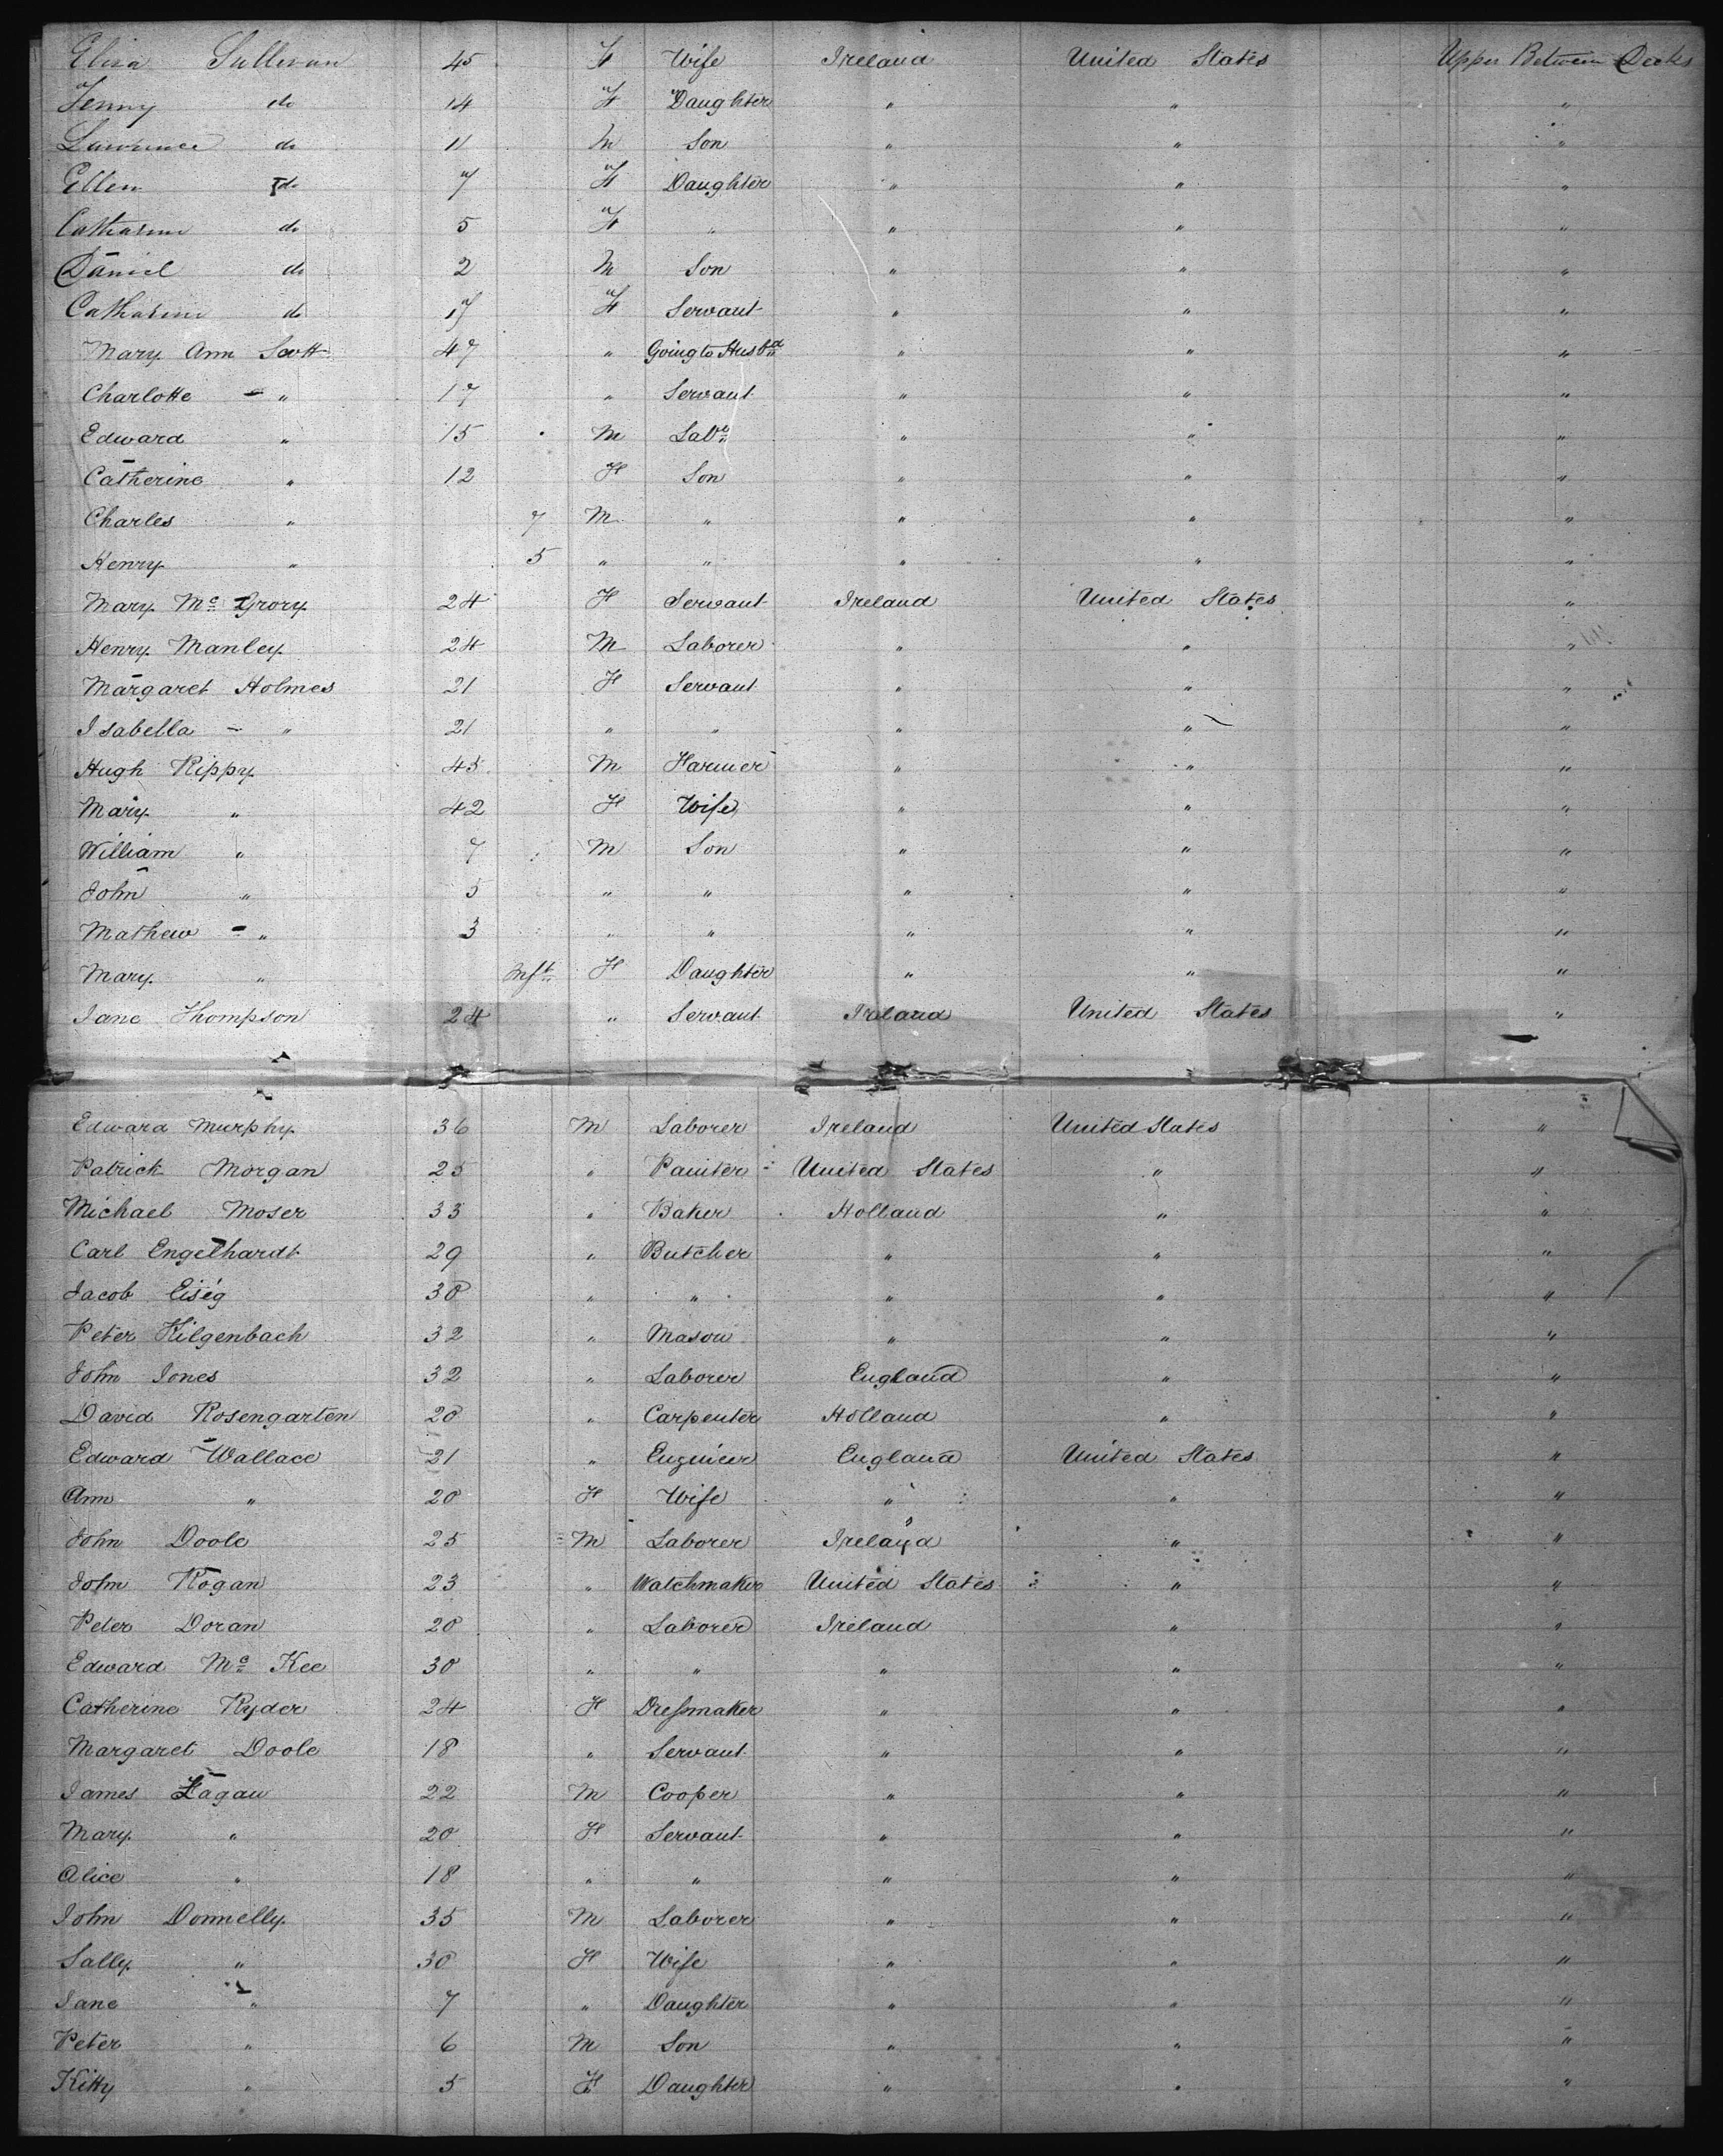 Eliza Sullivan 45 F Wife Ireland United States Upper Between Decks
Jenny do 14 F Daughter " " "
Lawrence do 11 M Son " " "
Ellen do 7 F Daughter " " "
Catharine do 5 F " " " "
Daniel do 2 M Son " " "
Catharine do 17 F Servant " " "
Mary Ann Scott 47 " Going to Husbd " " "
Charlotte " 17 " Servant " " "
Edward " 15 M Labr " " "
Catherine " 12 F Son " " "
Charles " 7 M " " " "
Henry " 5 " " " " "
Mary Mc Grory 24 F Servant Ireland United States "
Henry Manley 24 M Laborer " " "
Margaret Holmes 21 F Servant " " "
Isabella " 21 " " " " "
Hugh Rippy 45 M Farmer " " "
Mary " 42 F Wife " " "
William " 7 M Son " " "
John " 5 " " " " "
Mathew " 3 " " " " "
Mary " Inft F Daughter " " "
Jane Thompson 24 " Servant Ireland United States "
Edward Murphy 36 M Laborer Ireland United States "
Patrick Morgan 25 " Painter United States " "
Michael Moser 33 " Baker Holland " "
Carl Engelhardt 29 " Butcher " " "
Jacob Eiseg 30 " " " " "
Peter Hilgenbach 32 " Mason " " "
John Jones 32 " Laborer England " "
David Rosengarten 20 " Carpenter Holland " "
Edward Wallace 21 " Engineer England United States "
Ann " 20 F Wife " " "
John Doole 25 M Laborer Ireland " "
John Rogan 23 " Watchmaker United States " "
Peter Doran 20 " Laborer Ireland " "
Edward Mc Kee 30 " " " " "
Catherine Ryder 24 F Dressmaker " " "
Margaret Doole 18 " Servant " " "
James Fagan 22 M Cooper " " "
Mary " 20 F Servant " " "
Alice " 18 " " " " "
John Donnelly 35 M Laborer " " "
Sally " 30 F Wife " " "
Jane " 7 " Daughter " " "
Peter " 6 M Son " " "
Kitty " 5 F Daughter " " "